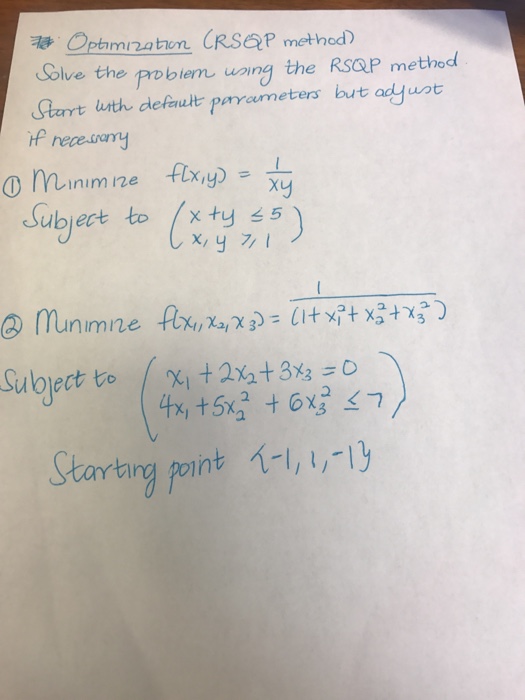 Optimization (RSQP method)
Solve the problem using the RSQP method.
Start with default parameters but adjust
if necessary
① Minimize f(x,y) = 1/xy
Subject to (x + y ≤ 5
x, y ≥ 1)
② Minimize f(x₁, x₂, x₃) = 1/(1 + x₁² + x₂² + x₃²)
Subject to (x₁ + 2x₂ + 3x₃ = 0
4x₁ + 5x₂² + 6x₃² ≤ 7)
Starting point {-1, 1, -1}